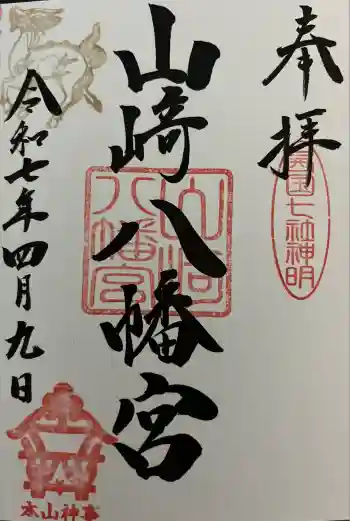 奉拝
美国七社神明
山﨑八幡宮
山﨑八幡宮
令和七年四月九日
本山神事